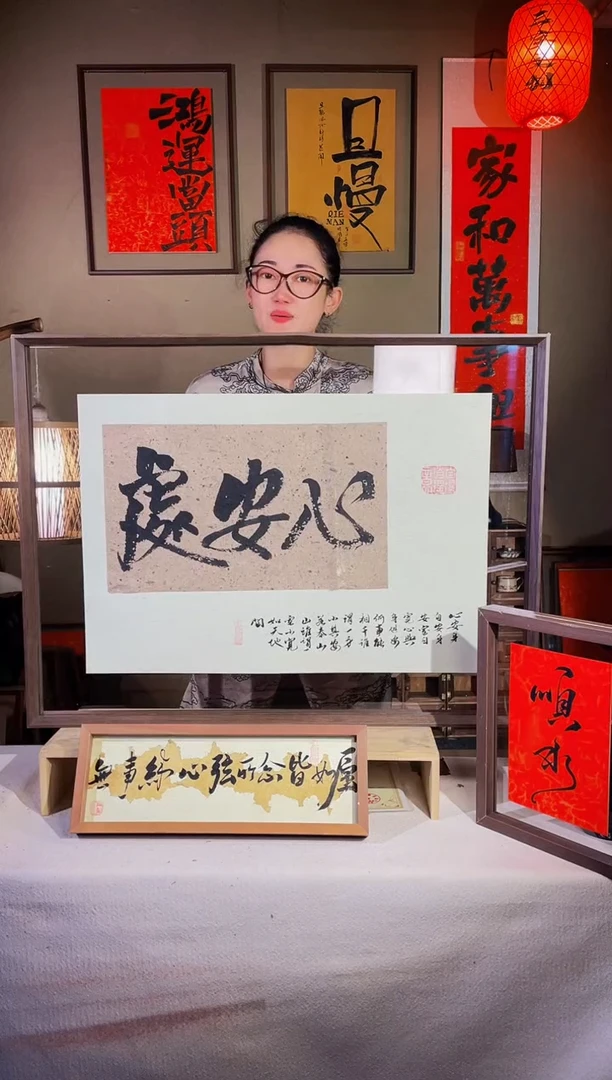 鴻運當頭
且慢
QIE
MAN
家和萬事
心安處
心安身
自安身
安室自
寬心與
身俱安
何事能
相干誰
謂一身
小其安
若泰山
山誰謂
室小寬
如天地
間
無事絆心弦所念皆如愿
順